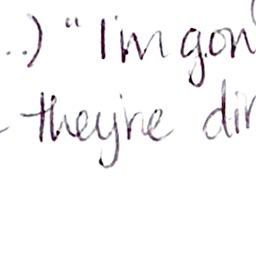 ..) "I'm gon
- they're dir